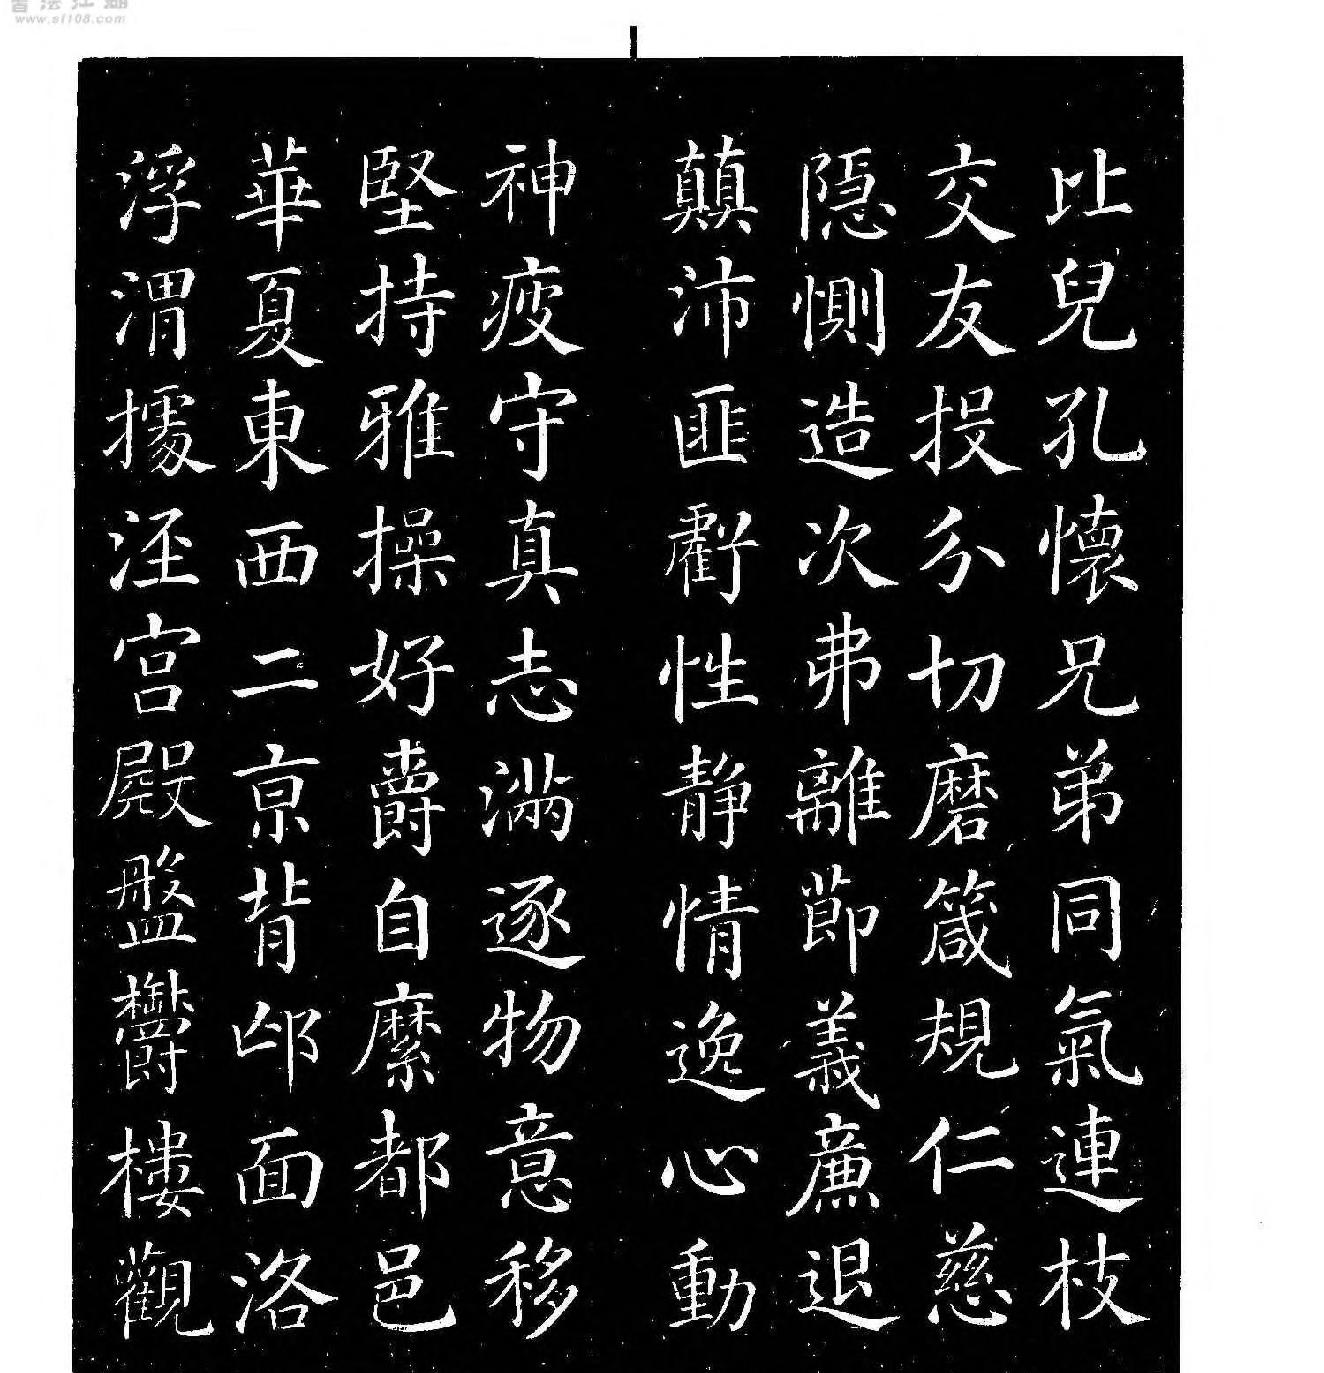 書法江湖
www.sf108.com
比兒孔懷兄弟同氣連枝
交友投分切磨箴規仁慈
隱惻造次弗離節義廉退
顛沛匪虧性静情逸心動
神疲守真志滿逐物意移
堅持雅操好爵自縻都邑
華夏東西二京背邙面洛
浮渭據涇宫殿盤鬱樓觀